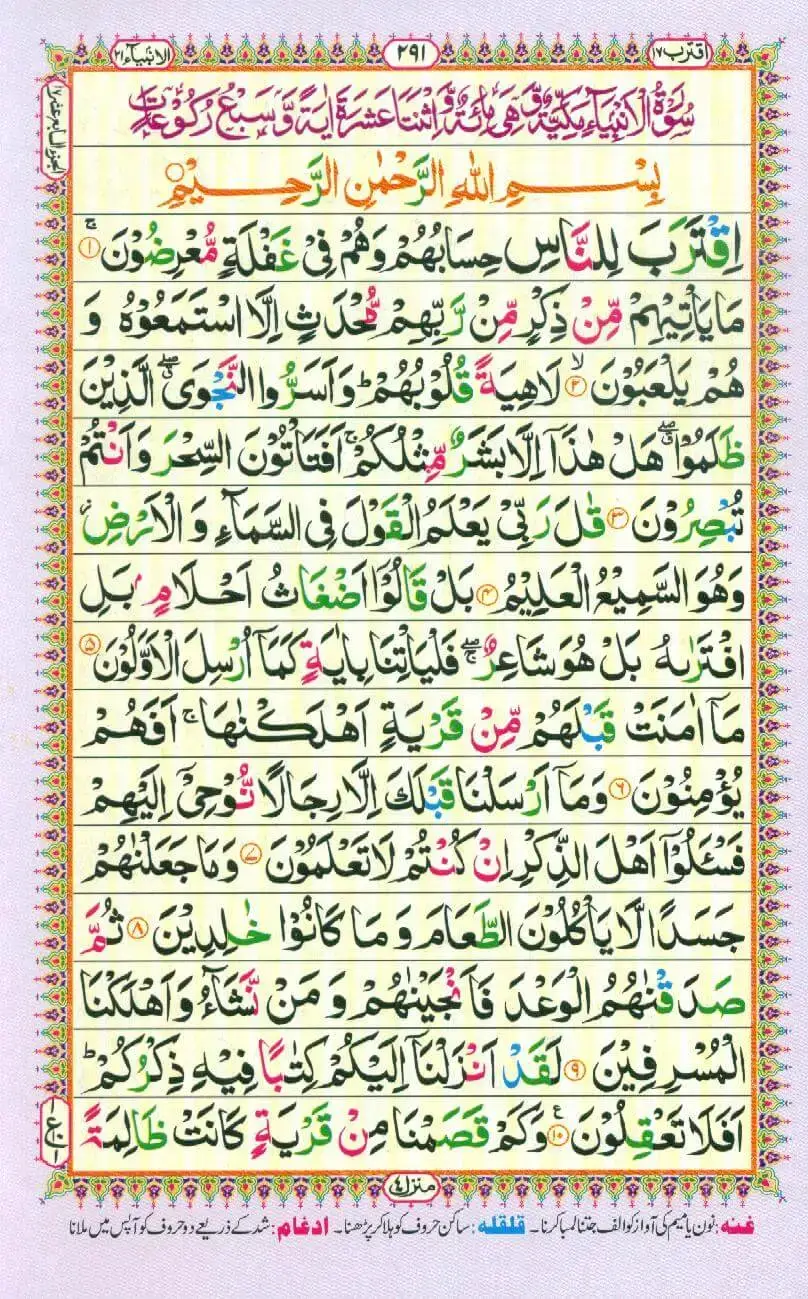 اقترب ۱۷
۲۹۱
الانبیآء ۲۱
الجزء السابع عشر ۱۷
سُوْرَةُ الْاَنْبِيَآءِ مَكِّيَّةٌ وَّهِىَ مِائَةٌ وَّ اثْنَتَا عَشَرَةَ اٰيَةً وَّ سَبْعُ رُكُوْعَاتٍ
بِسْمِ اللهِ الرَّحْمٰنِ الرَّحِيْمِ
اِقْتَرَبَ لِلنَّاسِ حِسَابُهُمْ وَهُمْ فِىْ غَفْلَةٍ مُّعْرِضُوْنَ ۚ ۱
مَا يَاْتِيْهِمْ مِّنْ ذِكْرٍ مِّنْ رَّبِّهِمْ مُّحْدَثٍ اِلَّا اسْتَمَعُوْهُ وَ
هُمْ يَلْعَبُوْنَ ۙ ۲ لَاهِيَةً قُلُوْبُهُمْ ؕ وَاَسَرُّوا النَّجْوَى ۖ الَّذِيْنَ
ظَلَمُوْا ۖ هَلْ هٰذَاۤ اِلَّا بَشَرٌ مِّثْلُكُمْ ۚ اَفَتَاْتُوْنَ السِّحْرَ وَاَنْتُمْ
تُبْصِرُوْنَ ۳ قٰلَ رَبِّىْ يَعْلَمُ الْقَوْلَ فِى السَّمَآءِ وَ الْاَرْضِ ؗ
وَهُوَ السَّمِيْعُ الْعَلِيْمُ ۴ بَلْ قَالُوْۤا اَضْغَاثُ اَحْلَامٍۭ بَلِ
افْتَرٰىهُ بَلْ هُوَ شَاعِرٌ ۖۚ فَلْيَاْتِنَا بِاٰيَةٍ كَمَاۤ اُرْسِلَ الْاَوَّلُوْنَ ۵
مَاۤ اٰمَنَتْ قَبْلَهُمْ مِّنْ قَرْيَةٍ اَهْلَكْنٰهَا ۚ اَفَهُمْ
يُؤْمِنُوْنَ ۶ وَمَاۤ اَرْسَلْنَا قَبْلَكَ اِلَّا رِجَالًا نُّوْحِىْۤ اِلَيْهِمْ
فَسْئَلُوْۤا اَهْلَ الذِّكْرِ اِنْ كُنْتُمْ لَا تَعْلَمُوْنَ ۷ وَمَا جَعَلْنٰهُمْ
جَسَدًا لَّا يَاْكُلُوْنَ الطَّعَامَ وَ مَا كَانُوْا خٰلِدِيْنَ ۸ ثُمَّ
صَدَقْنٰهُمُ الْوَعْدَ فَاَنْجَيْنٰهُمْ وَ مَنْ نَّشَآءُ وَ اَهْلَكْنَا
الْمُسْرِفِيْنَ ۹ لَقَدْ اَنْزَلْنَاۤ اِلَيْكُمْ كِتٰبًا فِيْهِ ذِكْرُكُمْ ؕ
اَفَلَا تَعْقِلُوْنَ ۱۰ ع وَكَمْ قَصَمْنَا مِنْ قَرْيَةٍ كَانَتْ ظَالِمَةً
منزل ۴
غنه: نون یا میم کی آواز کو الف جتنا لمبا کرنا۔ قلقله: ساکن حروف کو ہلا کر پڑھنا۔ ادغام: شد کے ذریعے دو حروف کو آپس میں ملانا